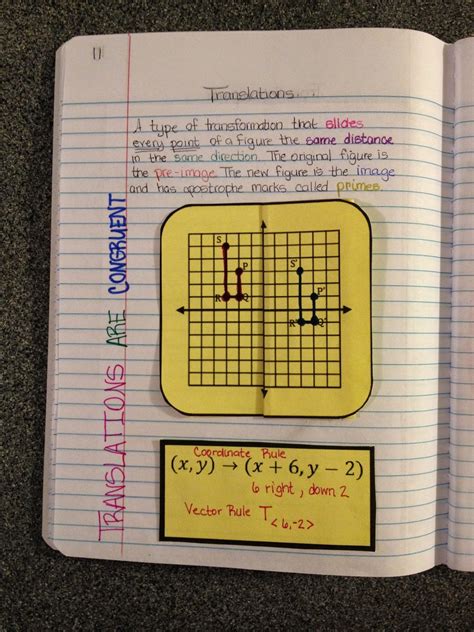 11
Translations
A type of transformation that slides
every point of a figure the same distance
in the same direction. The original figure is
the pre-image. The new figure is the image
and has apostrophe marks called primes.
TRANSLATIONS ARE CONGRUENT
S
P
R Q
S'
P'
R' Q'
Coordinate Rule
(x, y) → (x + 6, y − 2)
6 right, down 2
Vector Rule T<6,-2>